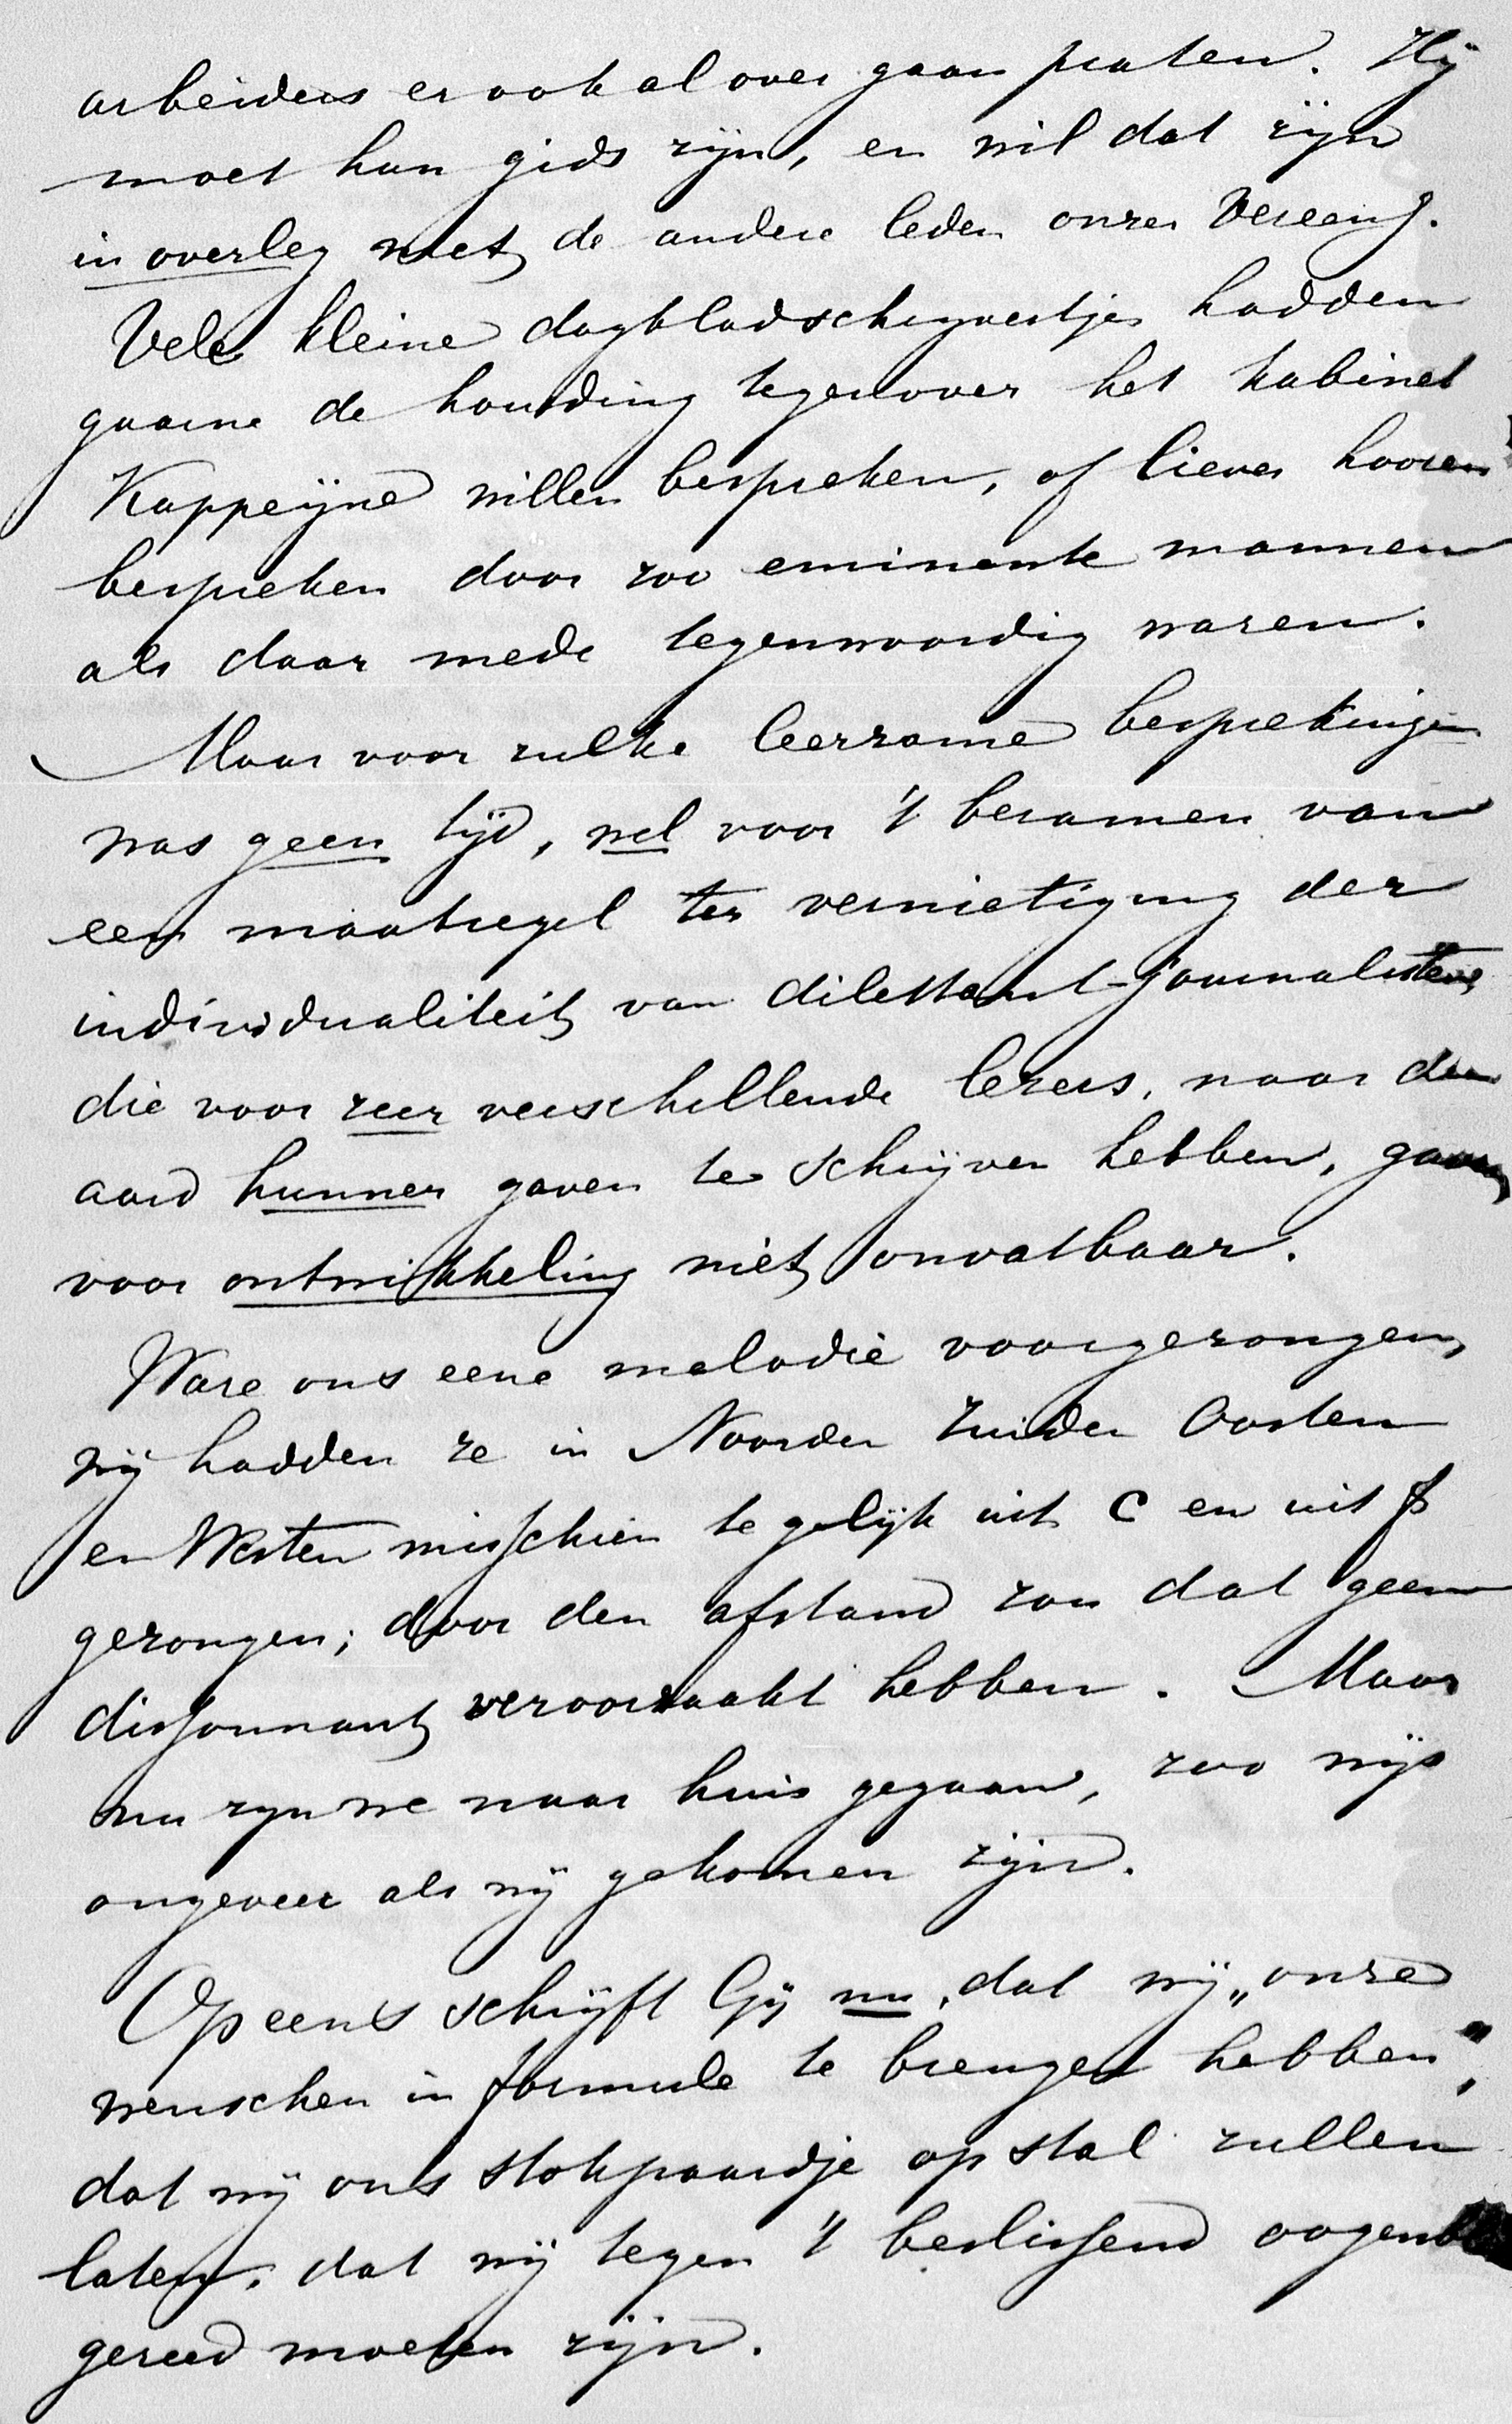 arbeiders er ook al over gaan praten. Hij
moet hun gids zijn, en wil dat zijn
in overleg met de andere leden onzer Vereenig.
Vele kleine dagbladschrijvertjes hadden
gaarne de houding tegenover het kabinet
Kappeijne willen bespreken, of liever hooren
bespreken door zoo eminente mannen
als daar mede tegenwoordig waren.
Maar voor zulke leerzame besprekingen
was geen tijd, wel voor 't beramen van
een maatregel ter vernietiging der
individualiteit van dilettant-journalisten,
die voor zeer verschillende lezers, naar den
aard hunner gaven te schrijven hebben, gaven
voor ontwikkeling niet onvatbaar.
Ware ons eene melodie voorgezongen,
wij hadden ze in Noorden Zuiden Oosten
en Westen misschien te gelijk uit C en uit fis
gezongen; door den afstand zou dat geen
dissonnant veroorzaakt hebben. Maar
nu zijn we naar huis gegaan, zoo wijs
ongeveer als wij gekomen zijn.
Op eens schrijft Gij nu, dat wij „onze
wenschen in formule te brengen hebben",
dat wij ons stokpaardje op stal zullen
laten, dat wij tegen 't beslissend
gereed moeten zijn.